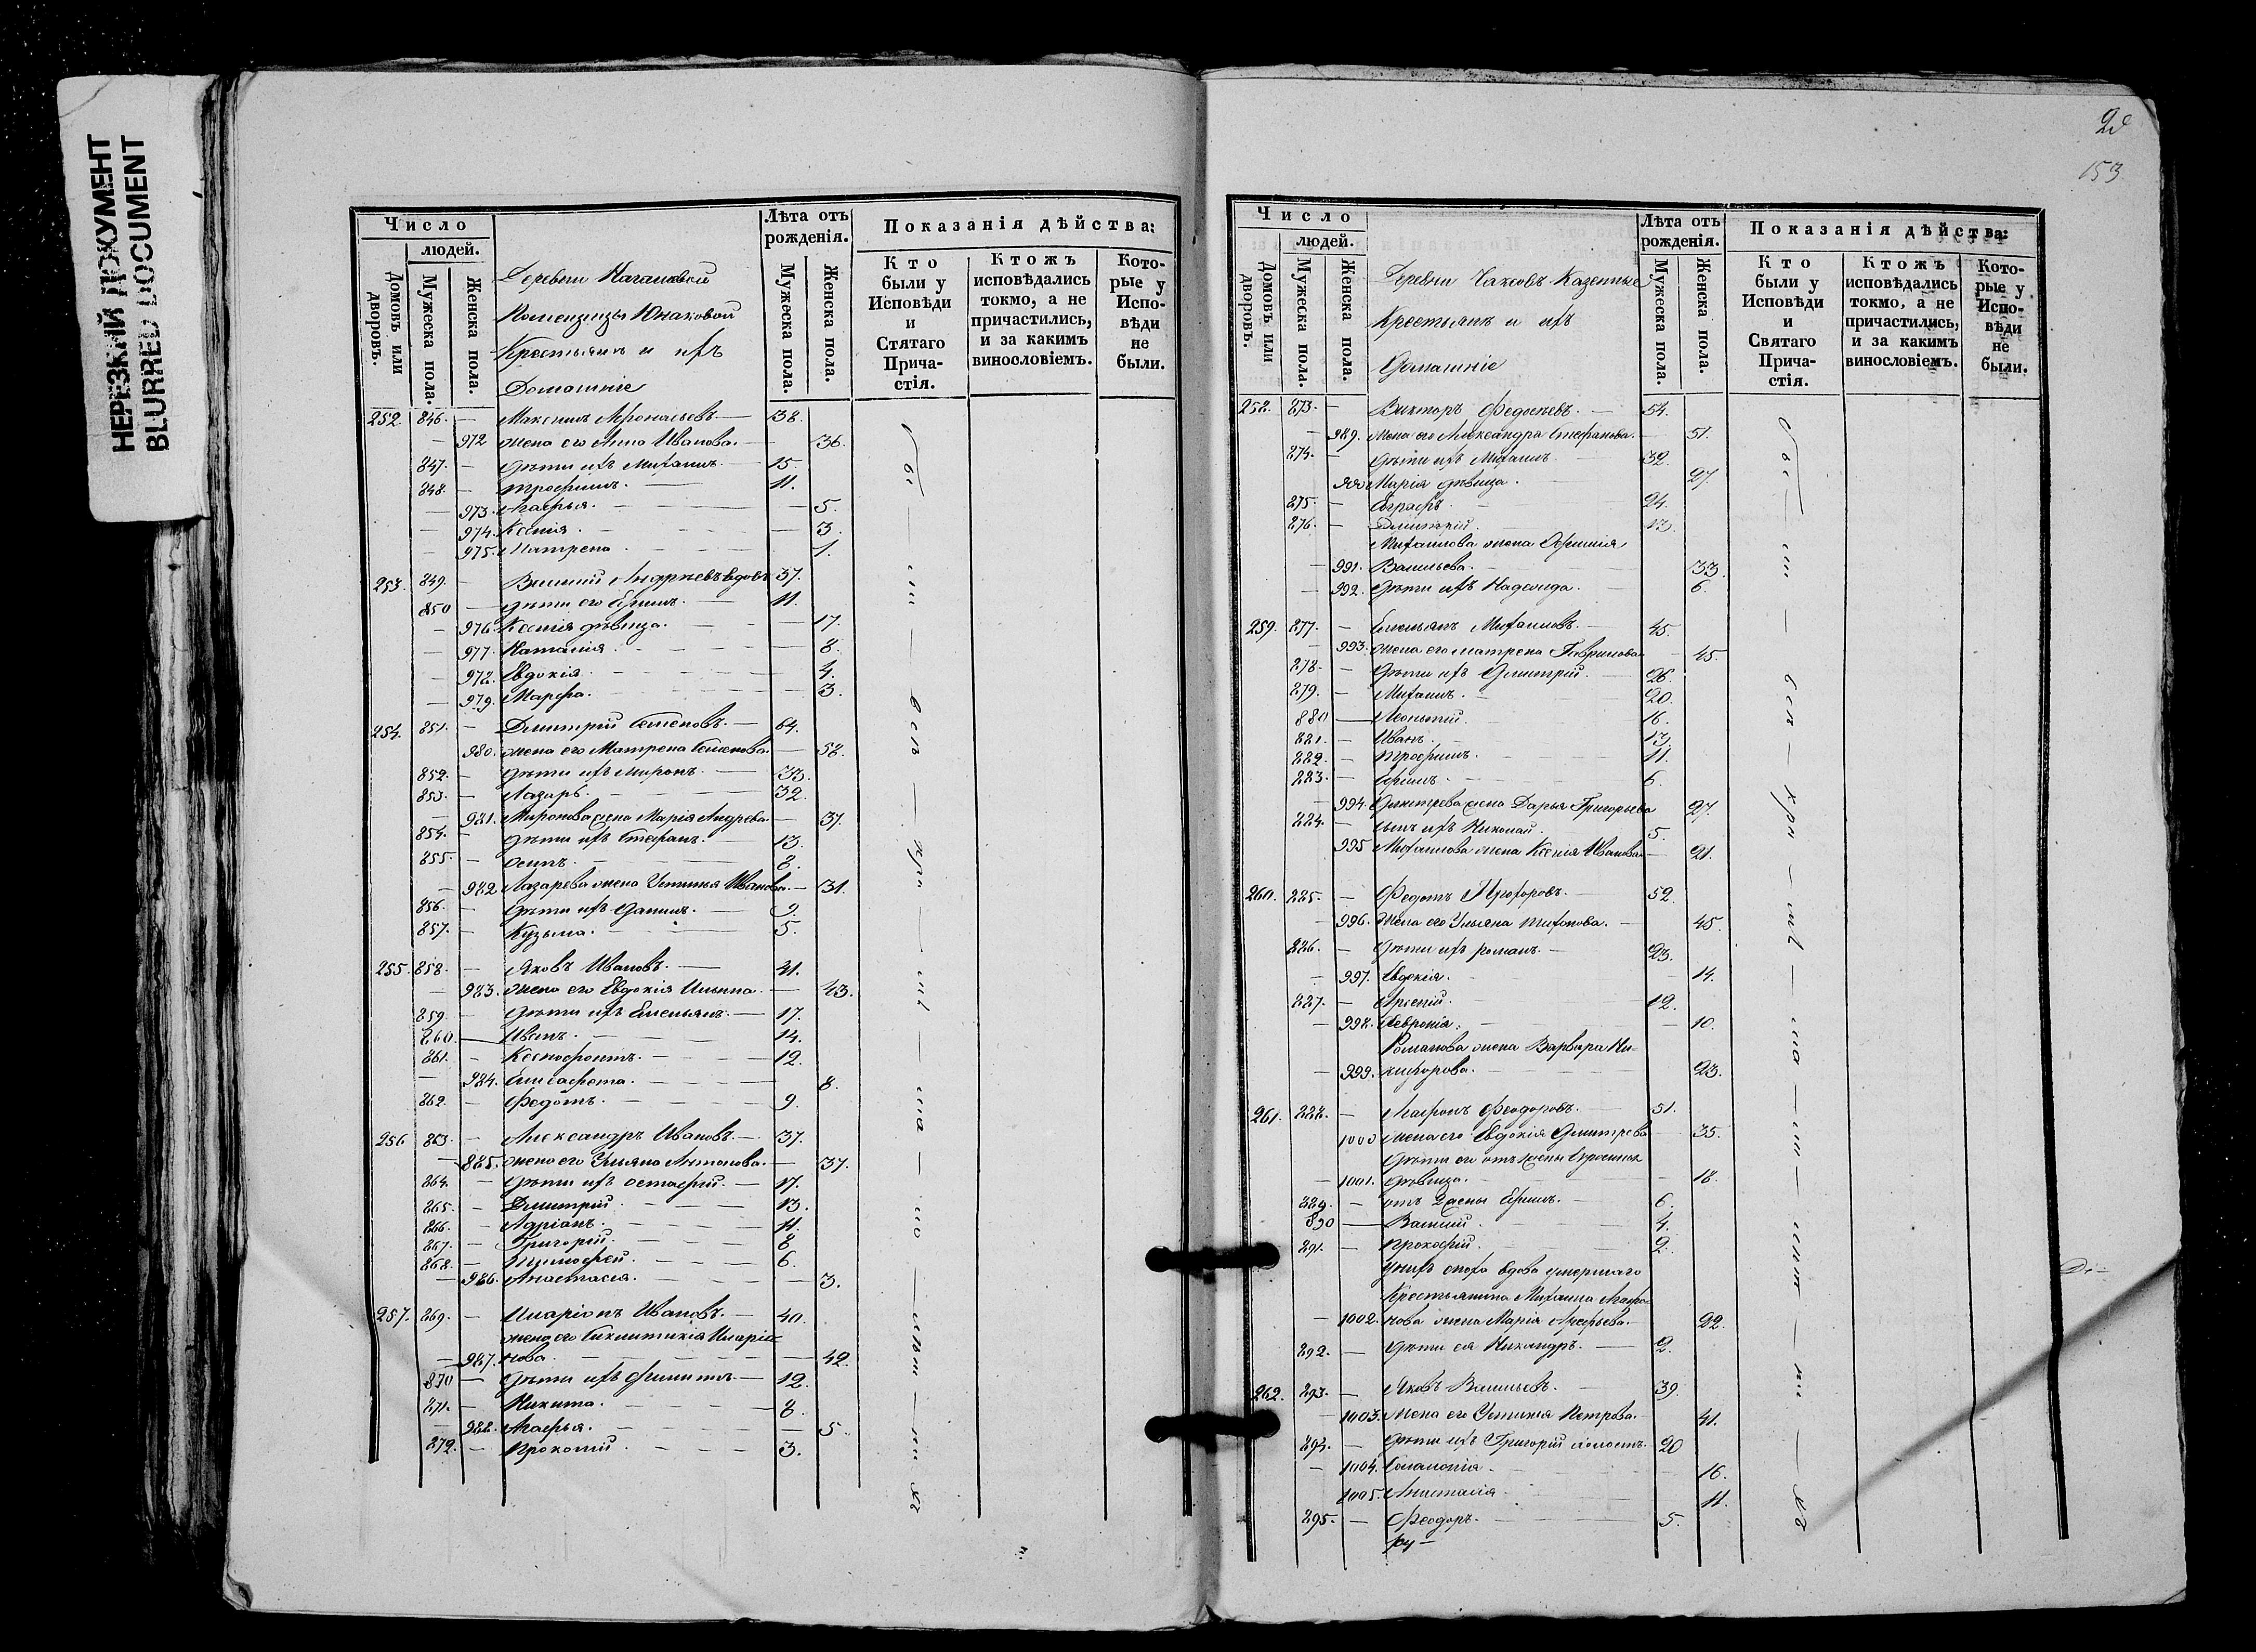 НЕРЕЗКИЙ ДОКУМЕНТ
BLURRED DOCUMENT
Число
людей.
Домовъ или дворовъ.
Мужеска пола.
Женска пола.
Деревни
Помещицы Юнаковой
Крестьянъ и ихъ
Домашніе
Лѣта отъ рожденія.
Мужеска пола.
Женска пола.
Показанія дѣйства:
Кто были у Исповѣди и Стятаго Прича- стія.
Ктожъ исповѣдались токмо, а не причастились, и за какимъ винословіемъ.
Кото- рые у Испо- вѣди не были.
252. 846. — Максимъ Афонасьевъ. — 38.
— 972 жена его Анна Иванова. — 36.
847. — дѣти ихъ Михаилъ. — 15.
848. — Трофимъ. — 11.
— 973. Агафья. — 5.
— 974. Ксенія. — 3.
— 975. Матрена — 1.
253. 849. — Василий Андреевъ вдовъ 37.
850 — дѣти его Ефимъ. — 11.
— 976. Ксенія дѣвица. — 17.
— 977. Наталія. — 8.
— 978. Евдокія. — 4.
— 979. Марфа. — 3.
254. 851. — Димитрій Семеновъ. — 64.
980. жена его Матрена Семенова. — 58.
852. — дѣти ихъ Миронъ. — 33.
853. — Лазарь. — 32.
— 981. Миронова жена Марія Андреева — 37.
854. — дѣти ихъ Стефанъ. 13.
855. — Осипъ. — 8.
— 982 Лазарева жена Устинья Иванова. — 31.
856. — дѣти ихъ Данилъ. — 9.
857. — Кузьма. — 5.
255. 858. — Яковъ Ивановъ. — 41.
— 983. жена его Евдокія Ильина. — 43.
859. — дѣти ихъ Емельянъ. — 17.
860. — Иванъ. — 14.
861. — Ксенофонтъ. — 12.
— 984. Елисафета. — 8.
862. — Федотъ. — 9.
256 863. — Александръ Ивановъ. — 37.
— 885. жена его Ульяна Антонова. — 37.
864. — дѣти ихъ Остафій. — 17.
865. — Димитрій — 13.
866. — Адріанъ. — 11.
867. — Григорій. — 8
868. — Тимофей. — 6.
— 986. Анастасія. — 3.
257. 869. — Иларіонъ Ивановъ. — 40.
жена его Синклитикія Иларіо
— 987. нова. — 42.
870 — дѣти ихъ Филиппъ — 12.
871. — Никита. — 8.
— 988. Агафья. — 5.
872. — Прокопій — 3.
28
153
Число
людей.
Домовъ или дворовъ.
Мужеска пола.
Женска пола.
Деревни Чаковъ Казенные
Крестьянъ и ихъ
Домашніе
Лѣта отъ рожденія.
Мужеска пола.
Женска пола.
Показанія дѣйства:
Кто были у Исповѣди и Святаго Прича- стія.
Ктожъ исповѣдались токмо, а не причастились, и за какимъ винословіемъ.
Кото- рые у Испо- вѣди не были.
258. 873. — Викторъ Федосѣевъ. — 54.
— 989. жена его Александра Стефанова. 51.
874. — дѣти ихъ Михаилъ. 32.
990 Марія дѣвица. 27.
875. — Евграфъ. — 24.
876. — Димитрій. 13.
Михаилова жена Офимія
— 991. Васильева. 33.
— 992. дѣти ихъ Надежда. 6.
259. 877. — Емельянъ Михаиловъ. — 45.
— 993. жена его Матрена Гаврилова — 45.
878. — дѣти ихъ Димитрій. 26.
879. — Михаилъ. — 20.
880 — Леонтій. 16.
881. — Иванъ. 13.
882. — Трофимъ. — 11.
883. — Ефимъ. 6.
— 994. Димитрева жена Дарья Григорьева 27.
884. — сынъ ихъ Николай. 5.
995 Михаилова жена Ксенія Иванова — 21.
260. 885. — Федотъ Прохоровъ. — 52.
— 996. жена его Ульяна Тихонова. — 45.
886. — дѣти ихъ Романъ. — 23.
— 997. Евдокія. — 14.
887. — Арсеній. 12.
— 998. Февронія. — 10.
Романова жена Варвара Ни-
— 999. кифорова. 23.
261. 888. — Агафонъ Феодоровъ. 51.
1000 жена его Евдокія Димитрева — 35.
— 1001. дѣвица. — 18.
889. — Ефимъ. — 6.
890 — Василій. 4.
891. — Прокофій. — 2.
У нихъ сноха вдова умершаго
Крестьянина Михаила Агафо
— 1002. нова жена Марія 22.
892. — дѣти ея Никандръ. — 2.
262. 893. — Яковъ Васильевъ. — 39.
— 1003. жена его Устинья Петрова. — 41.
894. — дѣти ихъ Григорій холостъ. 20
— 1004. Соломонія. 16.
1005. Анастасія. 11.
895. — Феодоръ. — 5.